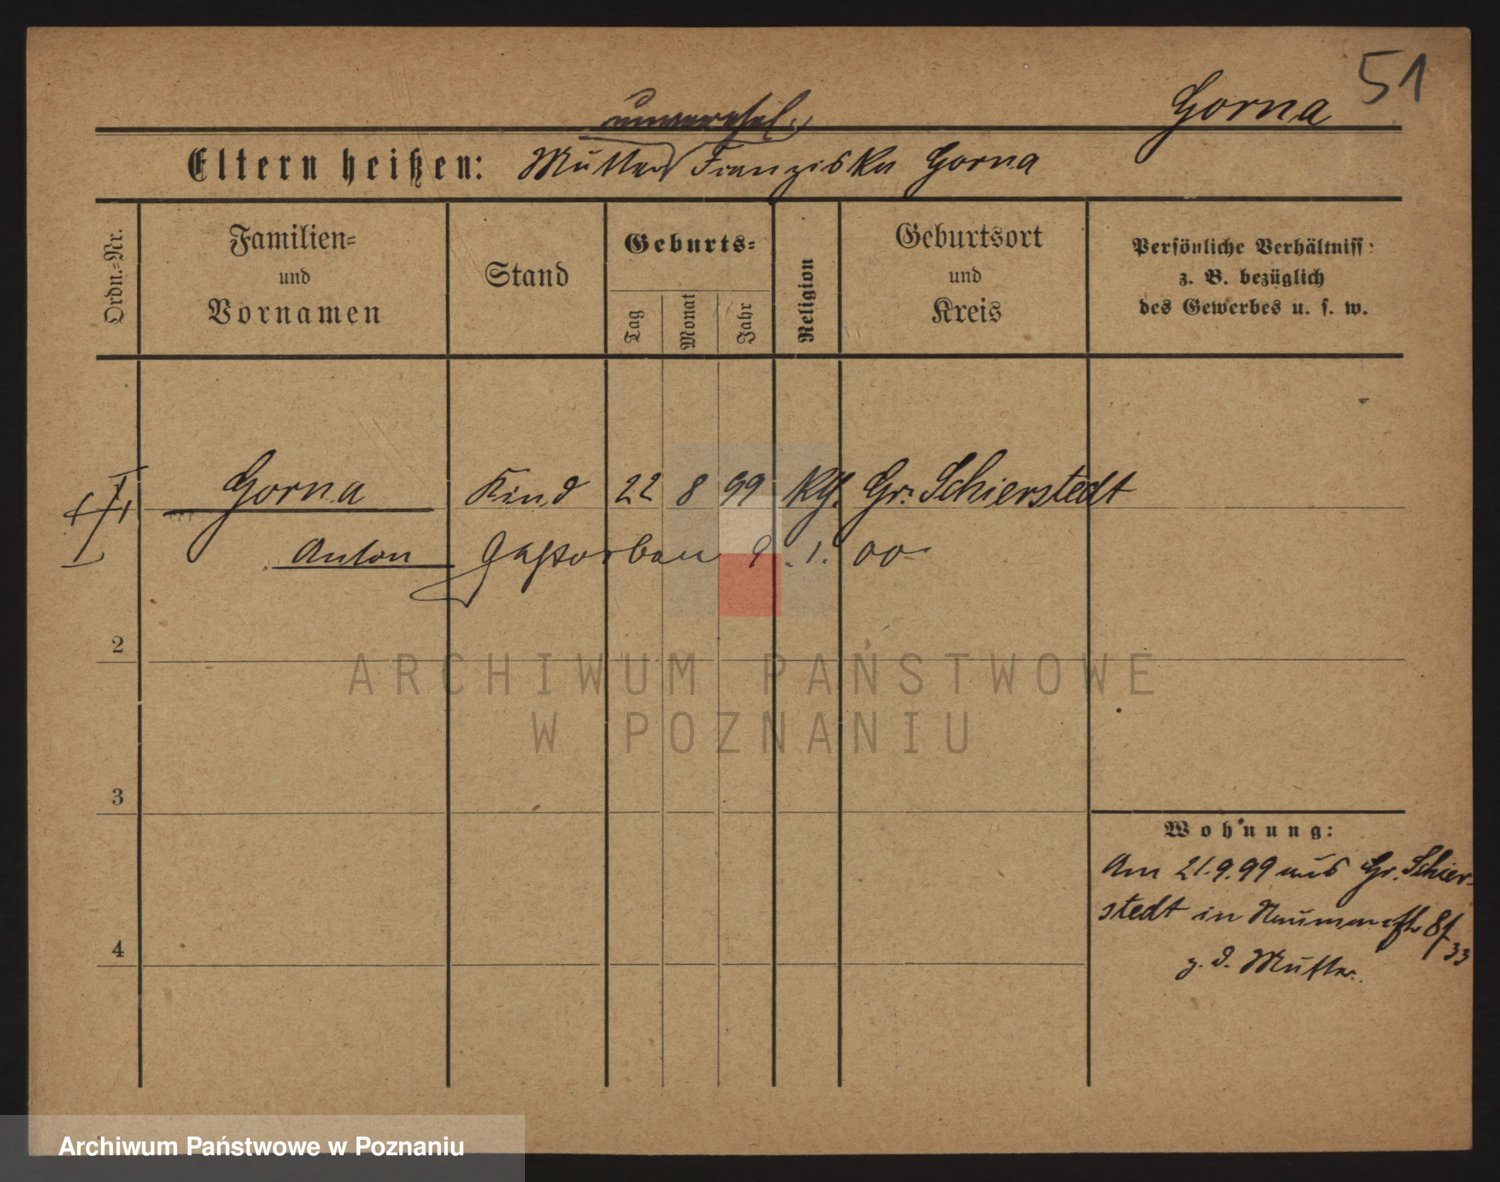 51
Gorna
unverehel.
Eltern heißen: Mutter Franziska Gorna
Ordn.-Nr.
Familien-
und
Vornamen
Stand
Geburts-
Tag
Monat
Jahr
Religion
Geburtsort
und
Kreis
Persönliche Verhältniss:
z. B. bezüglich
des Gewerbes u. s. w.
Gorna Kind 22 8 99 Kth. Gr. Schierstedt
Anton Gestorben 9. 1. 00
2
3
4
ARCHIWUM PAŃSTWOWE
W POZNANIU
Wohnung:
Am 21.9.99 aus Gr. Schier-
stedt in
z. d. Mutter.
Archiwum Państwowe w Poznaniu